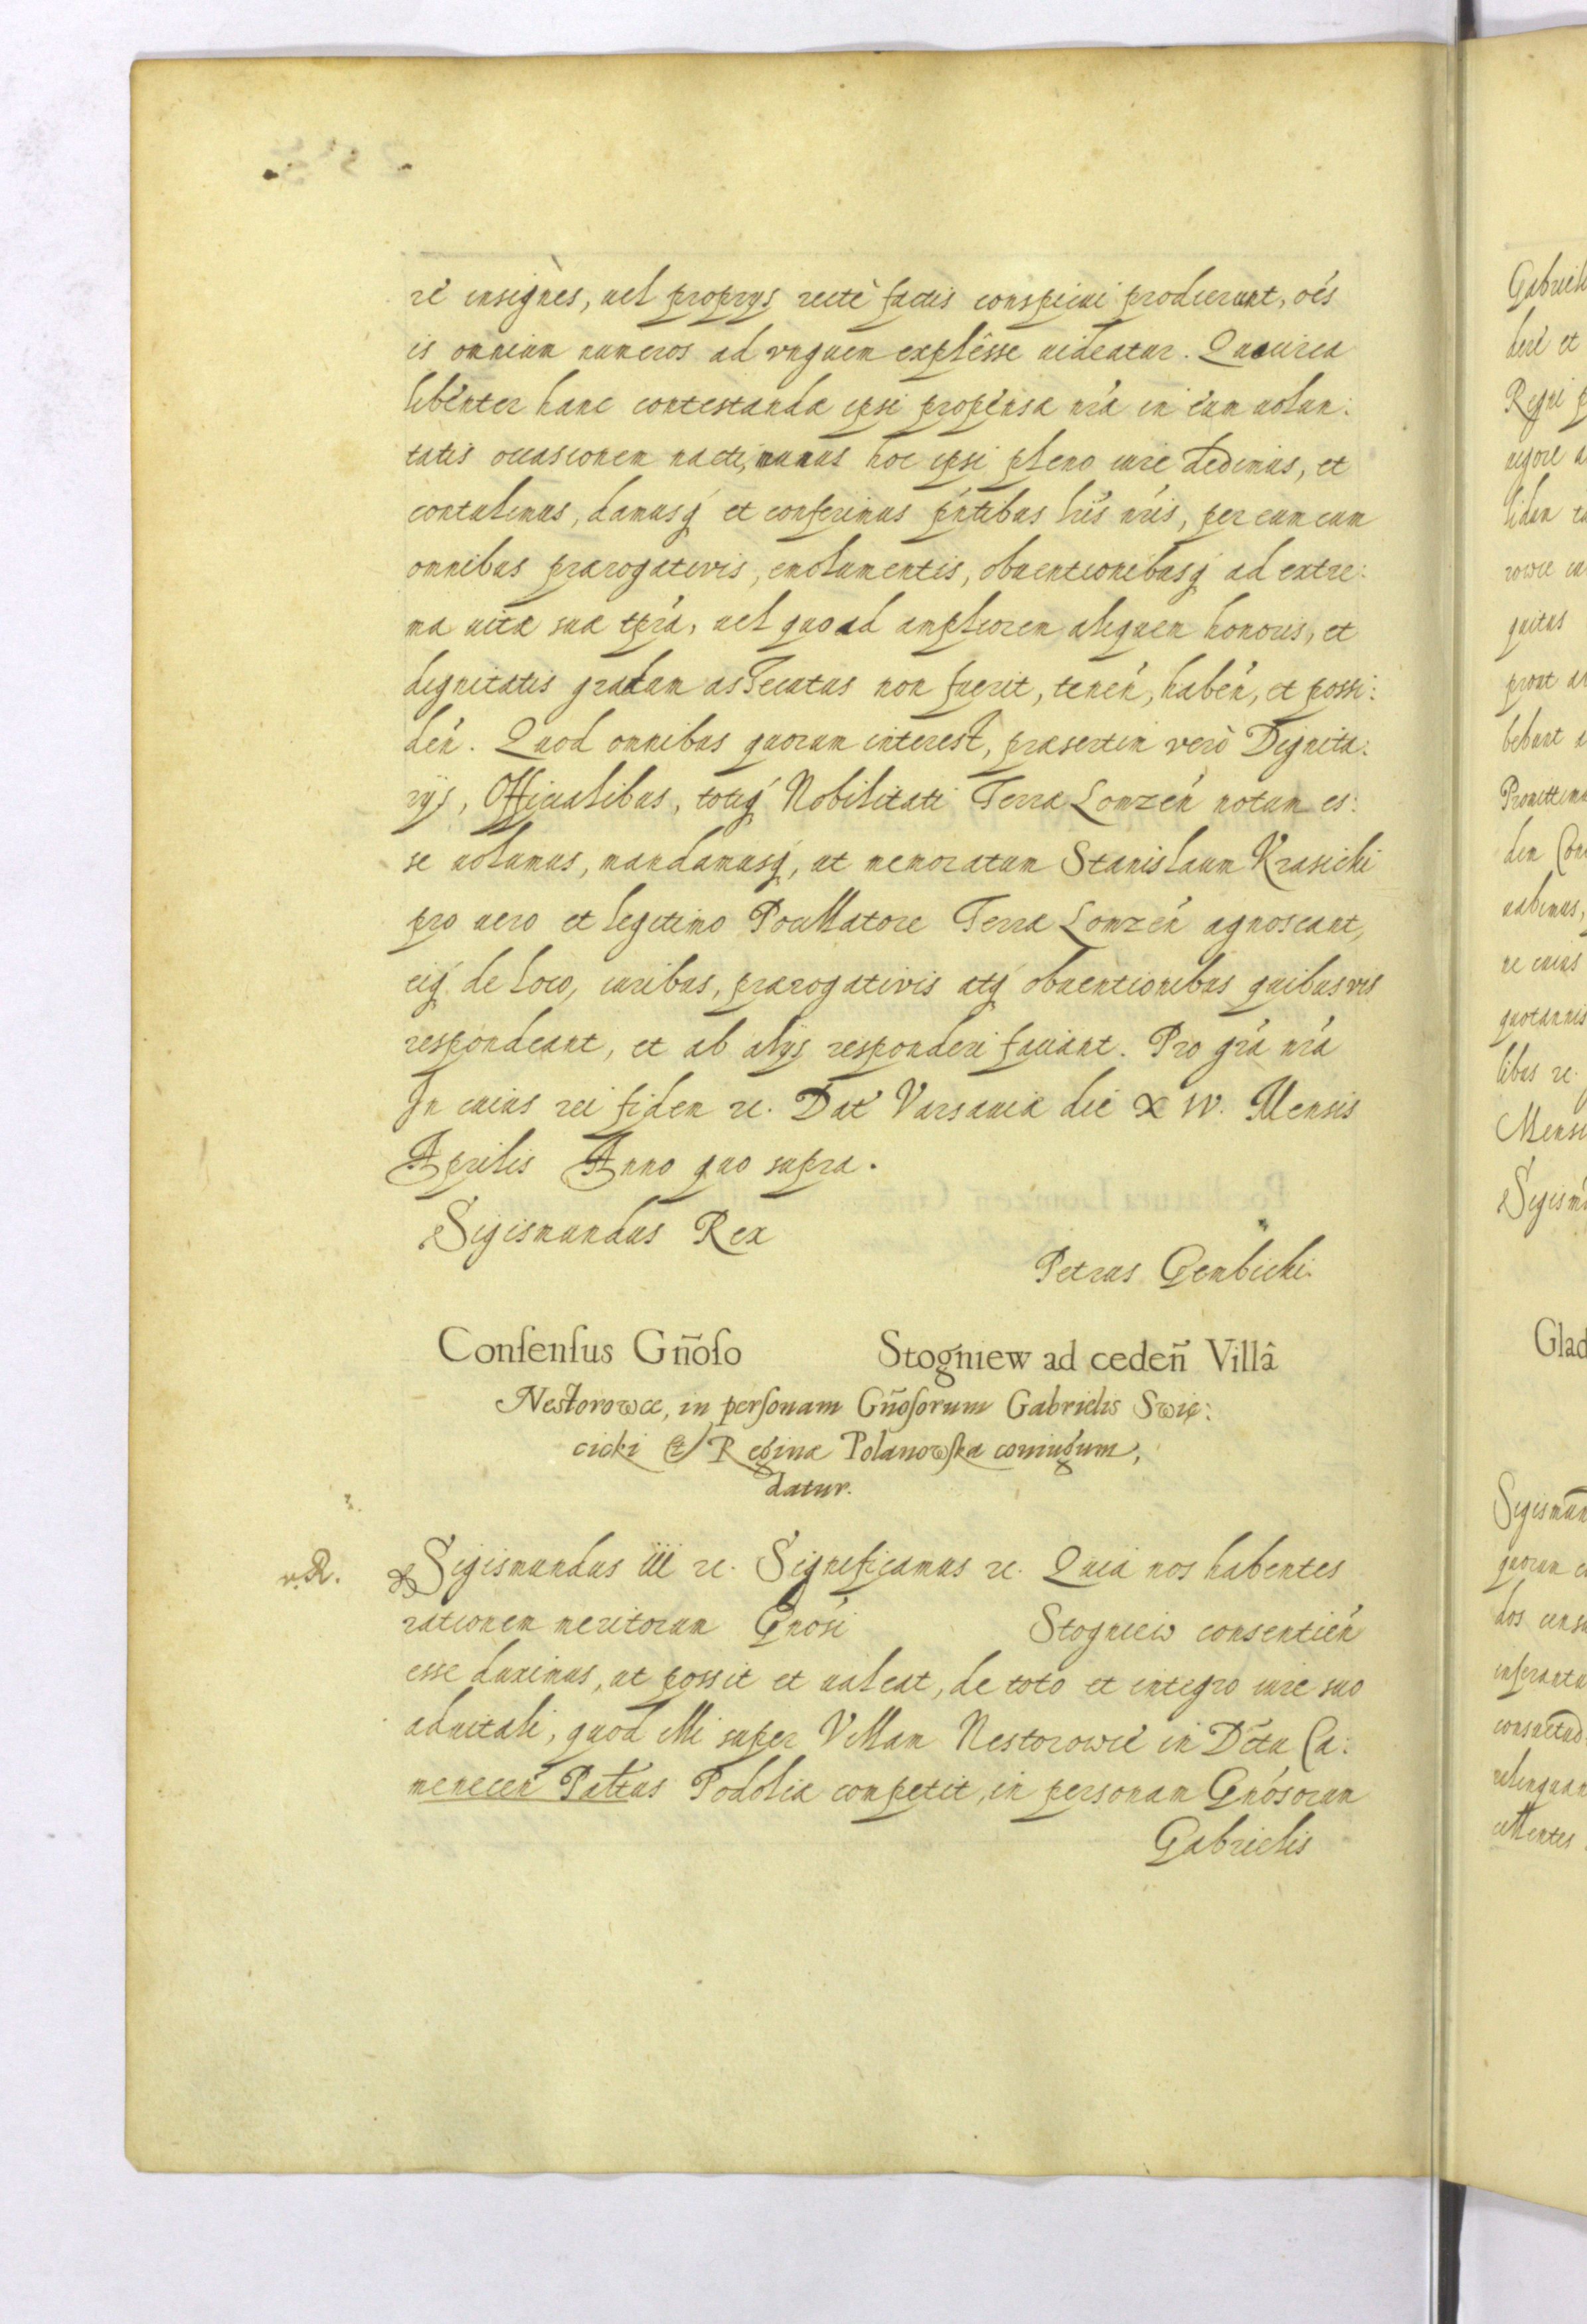 re insignes, uel proprys recte factis conspicui prodierunt, oẽs
is omnium numeros ad vnguem explêsse uideatur. Quocirca
libenter hanc contestandæ ipsi propensæ nr̃a in eum uolun:
tatis occasionem nacti, munus hoc ipsi pleno iure dedimus, et
contulimus, damusq́ et conferimus pñtibus lris nris, per eum cum
omnibus prærogativis, emolumentis, obuentionibusq́ ad extre:
ma uitæ suæ tpra, uel quoad ampliorem aliquem honoris, et
dignitatis gradum assecutus non fuerit, tenen̄, haben̄, et possi:
den̄. Quod omnibus quorum interest, præsertim verò Dignita:
rijs, Officialibus, totiq́ Nobilitati Terræ Lomzen̄ notum es:
se uolumus, mandamusq́, ut memoratum Stanislaum Krasicki
pro uero et legitimo Pocillatore Terræ Lomzen̄ agnoscant,
eiq́ de loco, iuribus, prærogativis atq́ obuentionibus quibusvis
respondeant, et ab alijs responderi faciant. Pro gr̃a nr̃a
In cuius rei fidem rc. Dat Varsauiæ die XIV. Mensis
Aprilis Anno quo supra.
Sigismundus Rex
Petrus Gembicki.
Conſenſus Gñoſo Stogniew ad ceden̄ Villâ
Nestorowce, in perſonam Gñoſorum Gabrielis Swię:
cicki & Reginæ Polanowſka coniugum,
datur.
R. Sigismundus iii rc. Significamus rc. Quia nos habentes
rationem meritorum Gnosi Stogniew consentien̄
esse duximus, ut possit et ualeat, de toto et integro iure suo
aduitali, quod illi super Villam Nestorowce in Dctu Ca:
menecen̄ Pałtus Podoliæ competit, in personam Gnosorum
Gabrielis